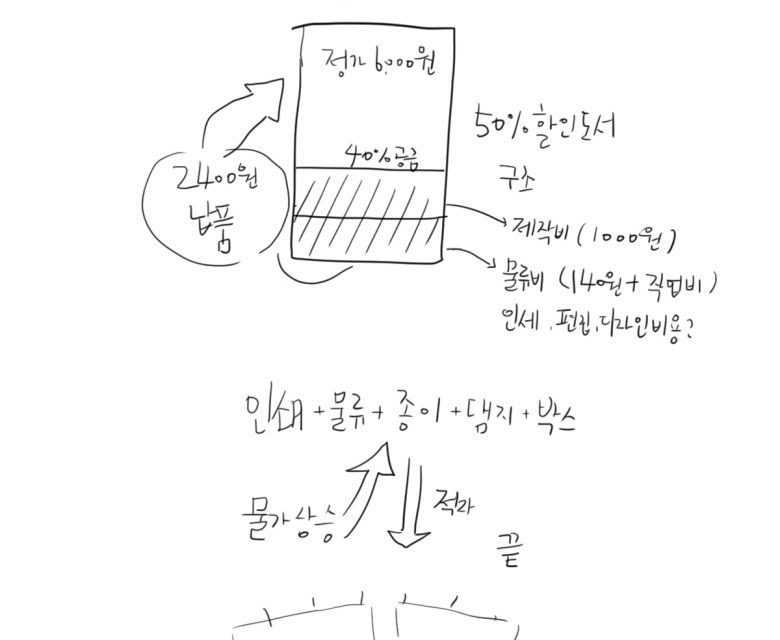 정가 6,000원
40% 공급
2400원
납품
50% 할인도서
구조
제작비 (1000원)
물류비 (140원 + 작업비)
인세, 편집, 디자인비용?
인쇄 + 물류 + 종이 + 댐지 + 박스
물가상승
적자
끝